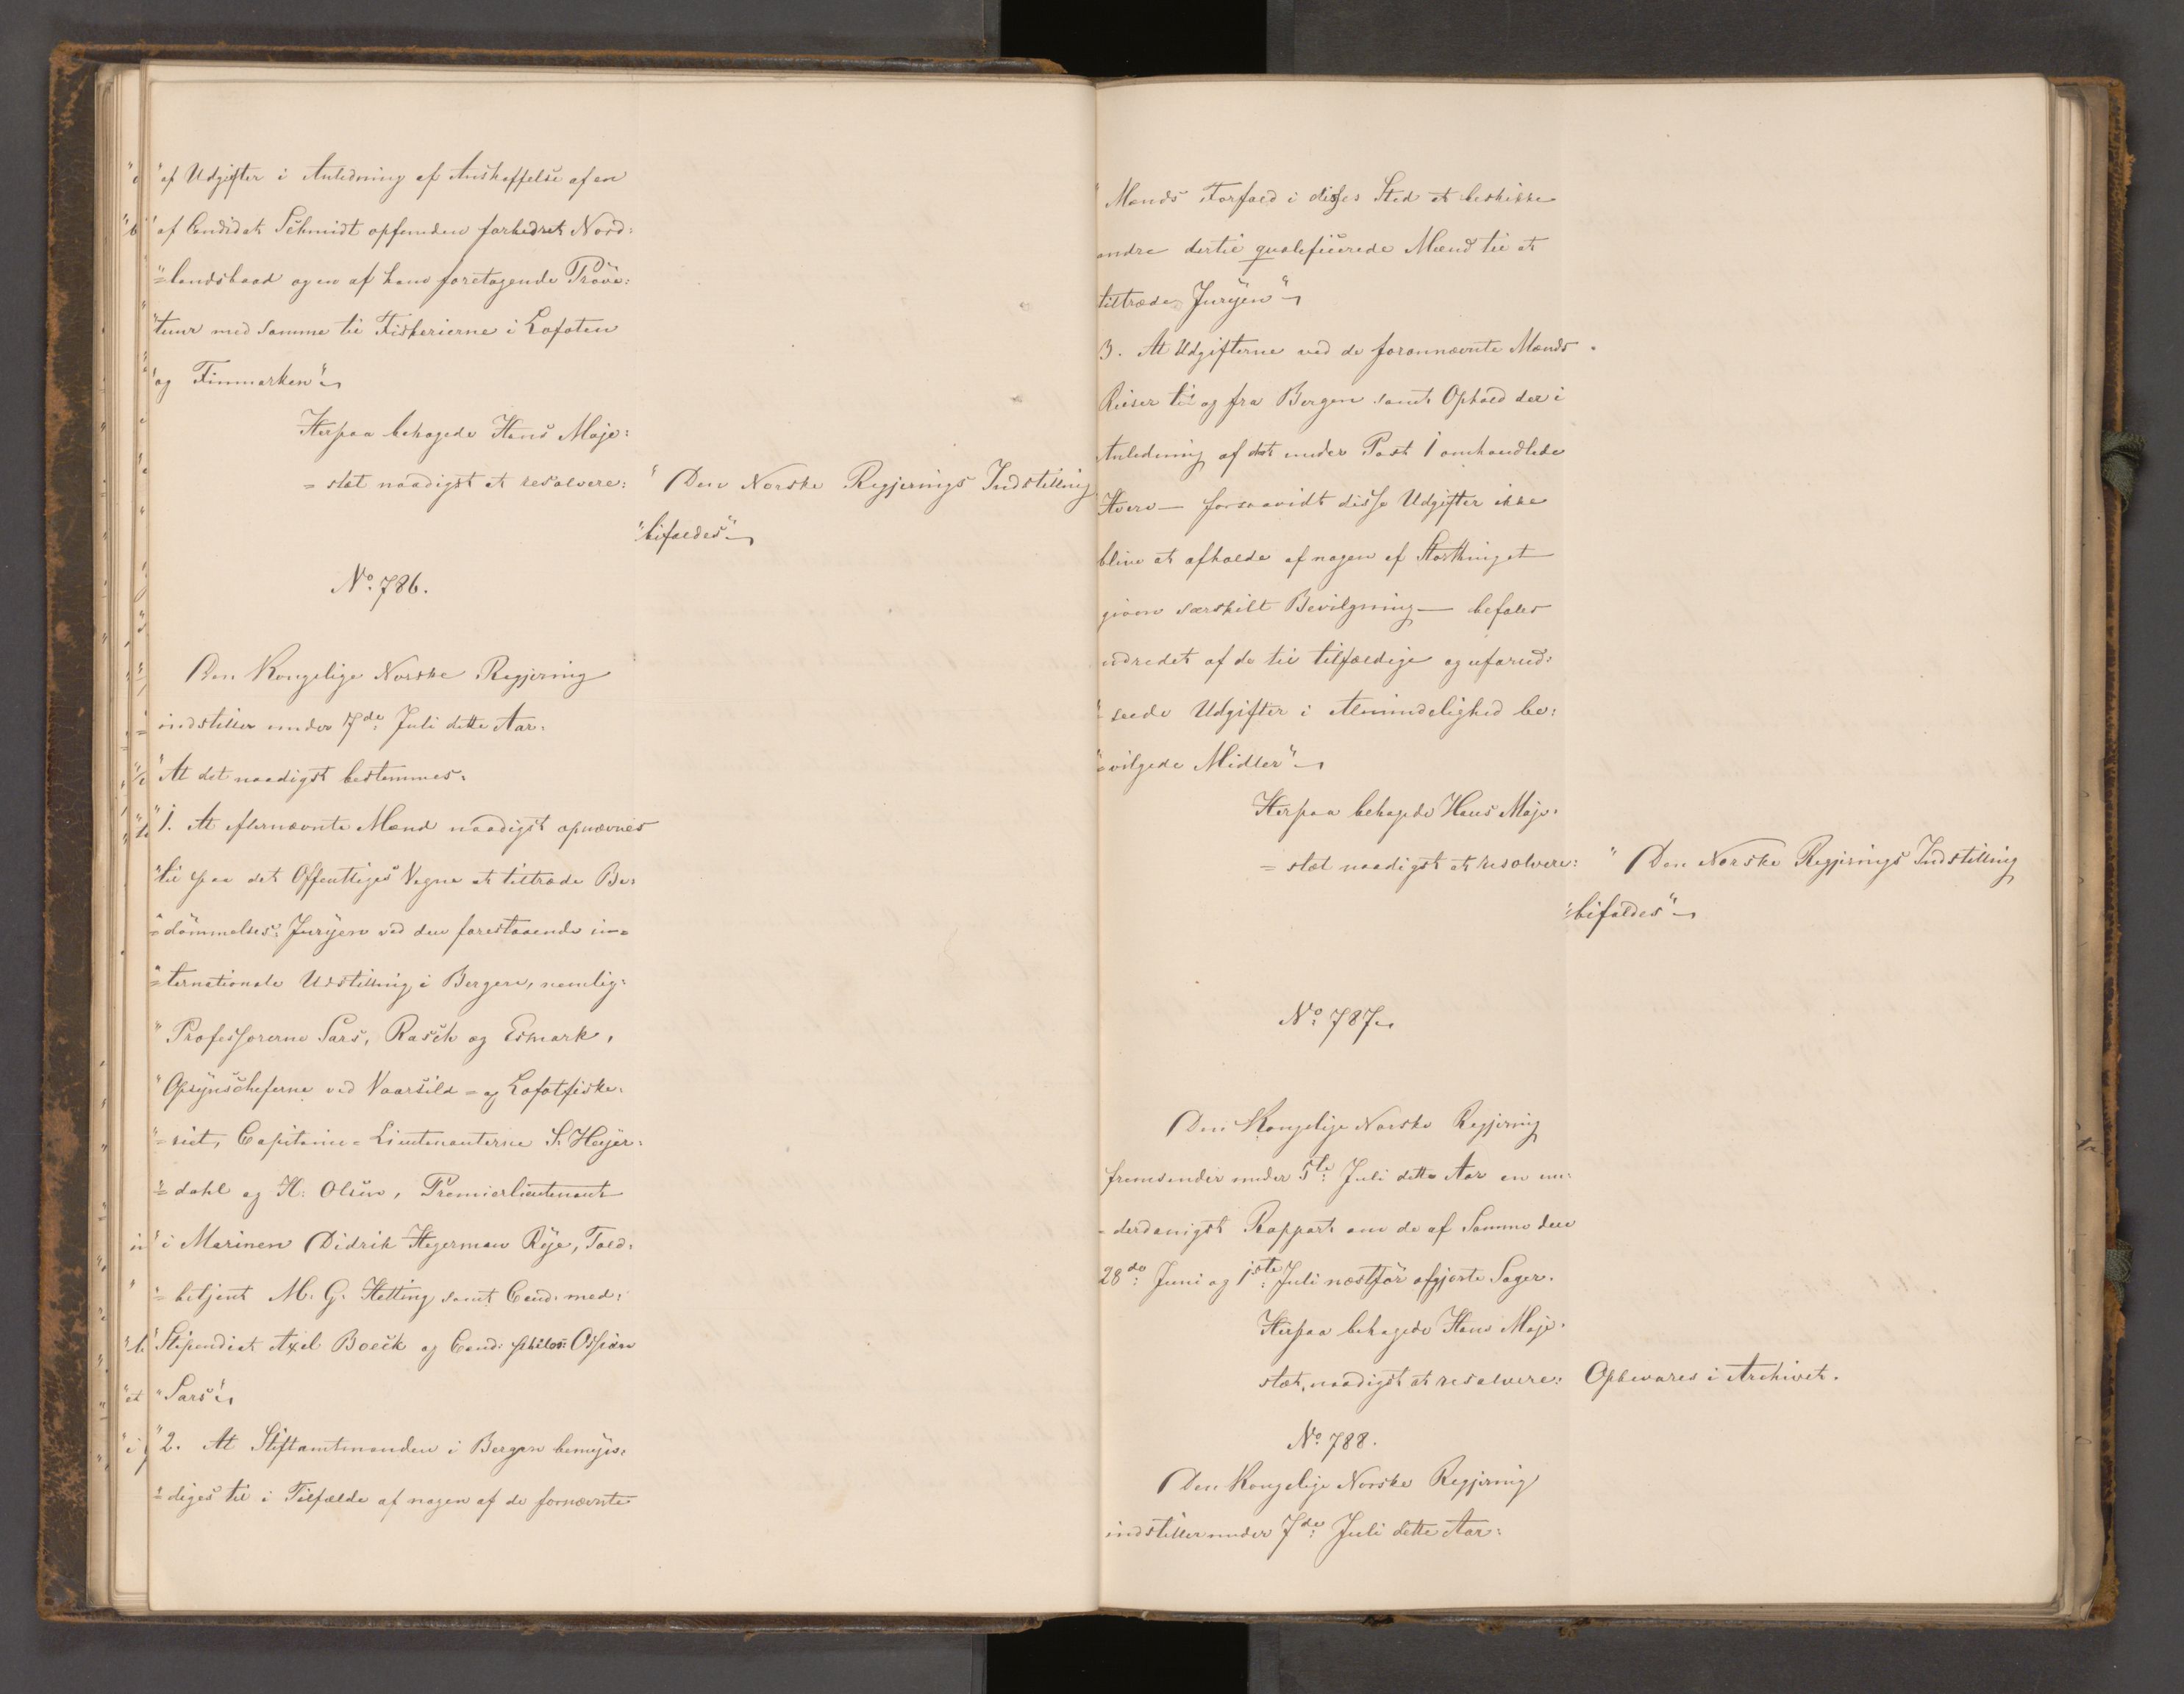 "af Udgifter i Anledning af Anskaffelse af en
"af Candidat Schmidt opfunden forbedret Nord:
"=landsbaad og en af ham foretagende Pröve:
"tuur med samme til Fiskerierne i Lofoten
"og Finmarken"
Herpaa behagede Hans Maje:
=stæt naadigst at resolvere: "Den Norske Regjerings Indstilling
"bifaldes"
No. 786.
Den Kongelige Norske Regjering
indstiller under 7de Juli dette Aar:
"At det naadigst bestemmes:
"1. At efternævnte Mænd naadigst opnævnes
"til paa det Offentliges Vegne at tiltræde Be:
"=dömmelses: Juryen ved den forestaaende in=
"=ternationale Udstilling i Bergen, nemlig:
"Professorerne Sars, Rasch og Esmark,
"Opsynscheferne ved Vaarsild= og Lofotfiske:
"=riet, Capitaine=Lieutenanterne S. Heyer:
"=dahl og H. Olsen, Premierlieutenant
"i Marinen Didrik Hegerman Rye, Told:
"=betjent M. G. Hetting samt Cand: med:
"Stipendiat Axel Boeck og Cand: philos: Ossian
"Sars".
"2. At Stiftamtmanden i Bergen bemyn:
"=diges til i Tilfælde af nogen af de fornævnte
"Mænds Forfald i disses Sted at beskikke
andre dertil qualificerede Mænd til at
tiltræde Juryen"
3. At Udgifterne ved de forannævnte Mænds
Reiser til og fra Bergen samt Ophold der i
Anledning af det under Post 1 omhandlede
Hverv — forsaavidt disse Udgifter ikke
blive at afholde af nogen af Storthinget
given særskilt Bevilgning — befales
udredet af de til tilfældige og uforud:
"=seede Udgifter i Almindelighed be:
"=vilgede Midler"
Herpaa behagede Hans Maje:
=stæt naadigst at resolvere: "Den Norske Regjerings Indstilling
"bifaldes"
No. 787.
Den Kongelige Norske Regjering
fremsender under 5te Juli dette Aar en un:
=derdanigst Rapport om de af Samme den
28de: Juni og 1ste: Juli næstför afgjorte Sager.
Herpaa behagede Hans Maje:
stæt, naadigst at resolvere: Opbevares i Archivet.
No. 788.
Den Kongelige Norske Regjering
indstiller under 7de: Juli dette Aar: